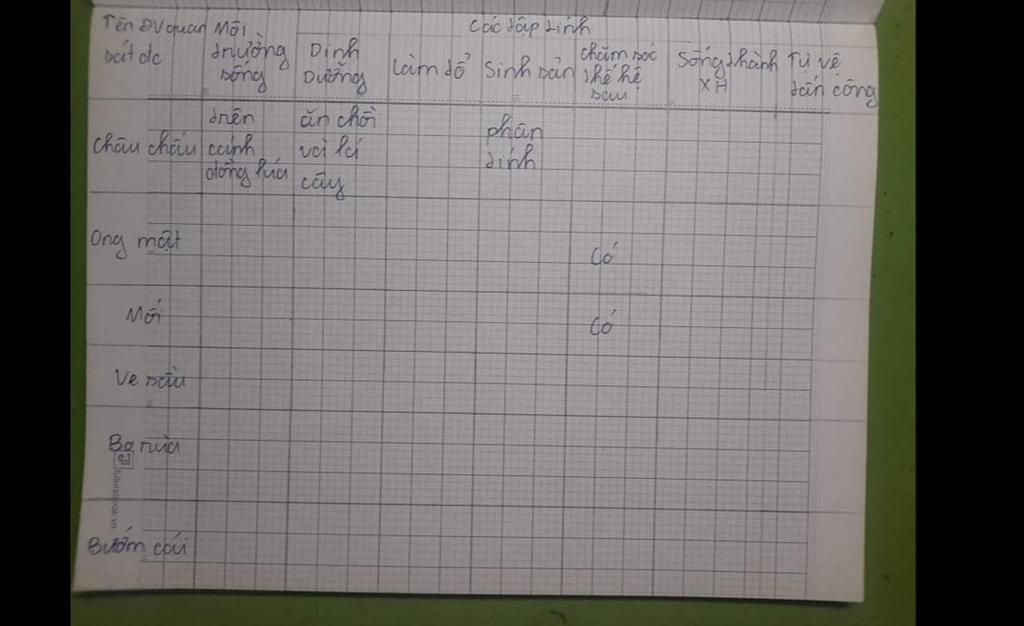 Tên ĐV quan Môi Các tập tính
sát đc trường Dinh Làm tổ Sinh sản chăm sóc Sống thành Tự vệ
sống Dưỡng thế hệ XH tấn công
sau
trên ăn chồi phân
Châu chấu cánh và lá tính
đồng lúa cây
Ong mật Có
Mối Có
Ve sầu
Bọ rùa
Bướm cái